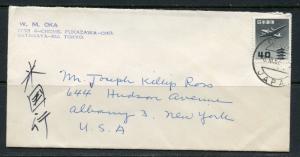 W. M. OKA
FUKAZAWA-CHO,
SETAGAYA-KU, TOKYO.
日本郵便
40
JAPAN
米国行
Mr. Joseph Kellip Ross
644 Hudson Avenue
Albany 3, New York
U.S.A